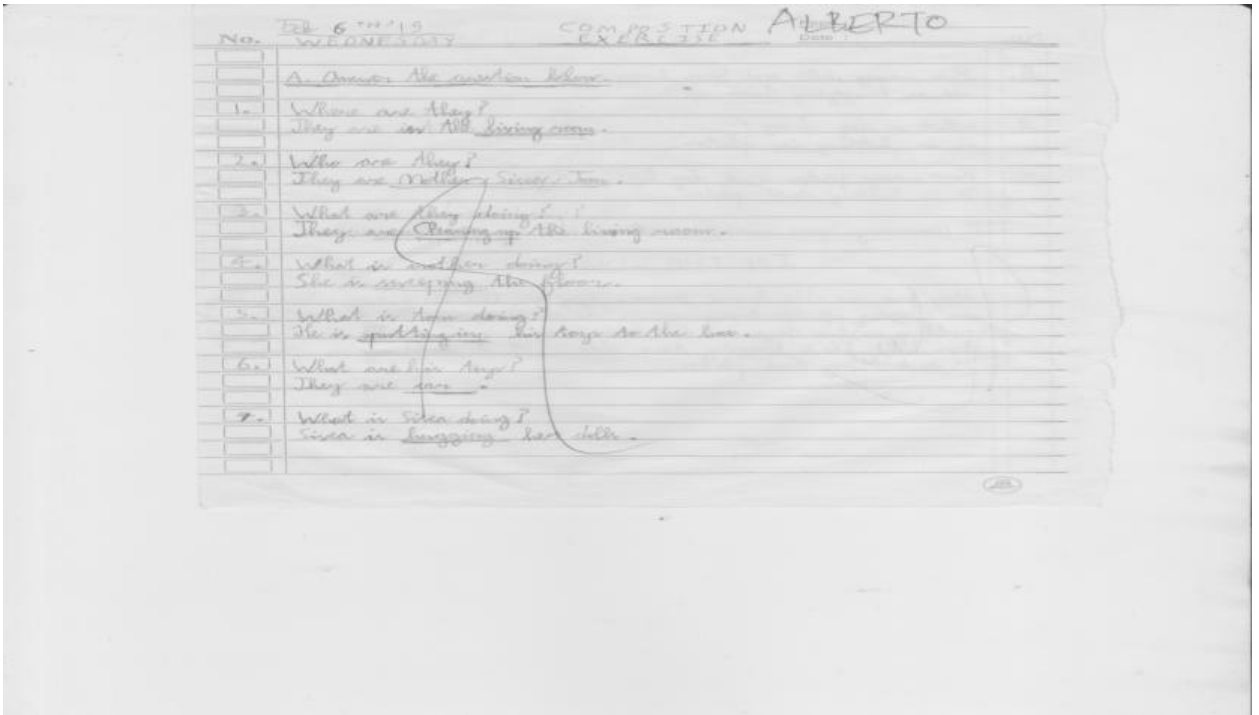 Feb 6TH'19 COMPOSITION ALBERTO
No. WEDNESDAY EXERCISE Date :
A. Answer the question below.
1. Where are they?
They are in the living room.
2. Who are they?
They are Mother, Tom.
3. What are they doing?
They are Cleaning up the living room.
4. What is mother doing?
She is sweeping the floor.
5. What is tom doing?
He is putting in his toys to the box.
6. What are his toys?
They are .
7. What is doing?
is hugging her dolls.